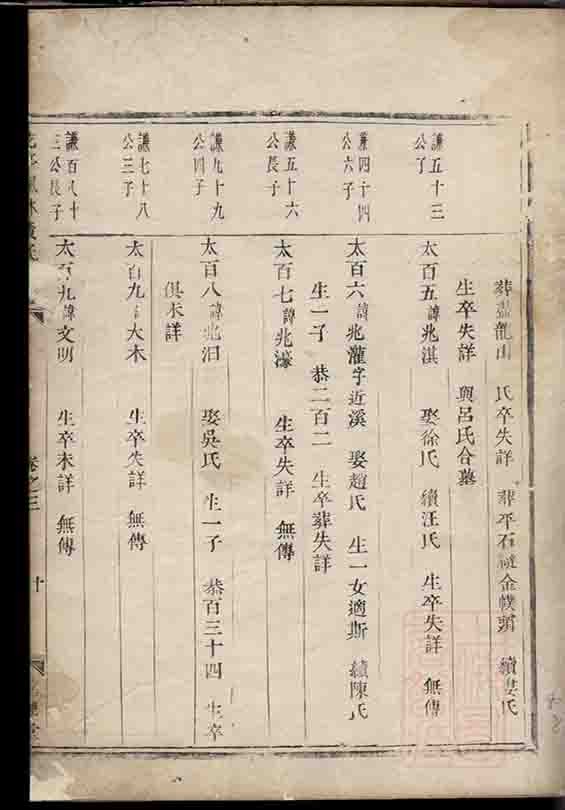 葬盡龍山　氏卒失詳　葬平石 金幞頭　續婁氏
生卒失詳　與呂氏合墓
謙五十三
公子
太百五諱兆淇　娶徐氏　續汪氏　生卒失詳　無傳
謙四十四
公六子
太百六諱兆灌字近溪　娶趙氏　生一女適斯　續陳氏
生一子　恭二百二　生卒葬失詳
謙五十六
公長子
太百七諱兆濠　生卒失詳　無傳
謙九十九
公四子
太百八諱兆汩　娶吳氏　生一子　恭百三十四　生卒
俱未詳
謙七十八
公三子
太百九諱大木　生卒失詳　無傳
謙百八十
三公長子
太百九諱文明　生卒未詳　無傳
卷之三
十